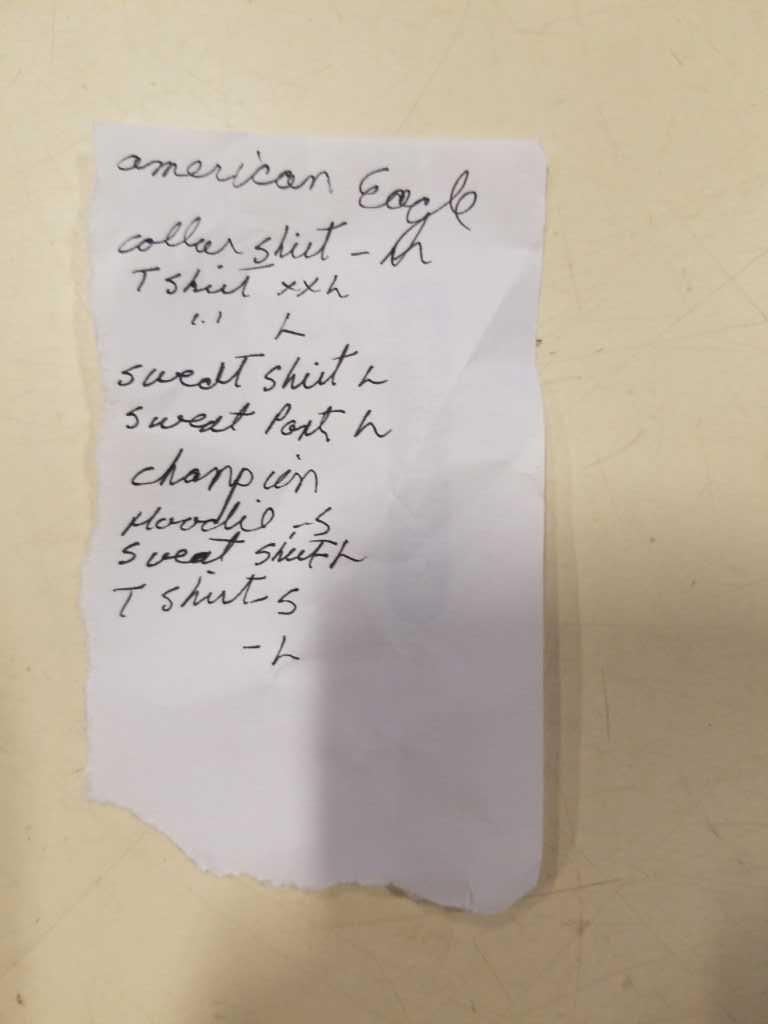 american Eagle
collar shirt - M
T shirt XXL
" " L
sweat shirt L
sweat Pant L
champion
Hoodie - S
sweat shirt L
T shirt - S
- L